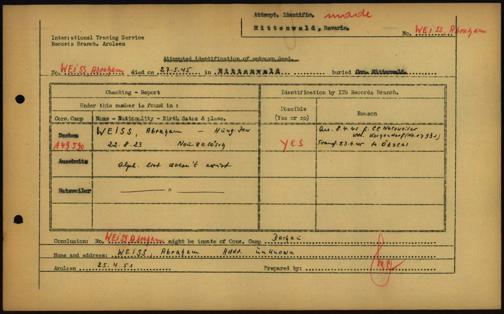 Attempt. Identific. made
Mittenwald, Bavaria.
No. WEISS, Abraham
International Tracing Service
Records Branch, Arolsen
Attempted identification of unknown dead.
No. WEISS Abraham died on 27.5.45 in Mittenwald buried Mittenwald.
Checking - Report
Identification by ITS Records Branch.
Under this number is found in:
Possible (Yes or no)
Reason
Conc. Camp
Name - Nationality - Birth, dates & place.
Dachau
WEISS, Abraham - Hung. Jew
149 530
22.8.23
YES
Auschwitz
Alph. list doesn't exist
Natzweiler
Conclusion: No. WEISS Abraham might be inmate of Conc. Camp Dachau
Name and address: WEISS, Abraham Addr. unknown
Arolsen 25.4.51 Prepared by: